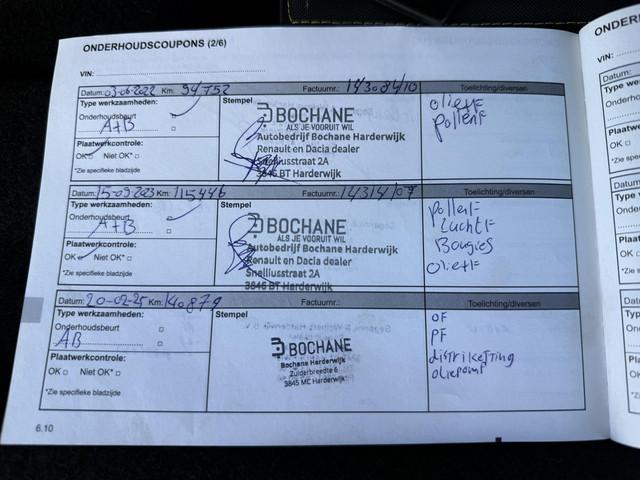 ONDERHOUDSCOUPONS (2/6)
VIN:
Datum: 03-06-2022 Km: 94752 Factuurnr.: 143084/10 Toelichting/diversen
Type werkzaamheden:
Onderhoudsbeurt
A+B
Plaatwerkcontrole:
OK Niet OK*
*Zie specifieke bladzijde
Stempel
BOCHANE
ALS JE VOORUIT WIL
Autobedrijf Bochane Harderwijk
Renault en Dacia dealer
Snelliusstraat 2A
3846 BT Harderwijk
olieF
pollenF
Datum: 15-03-2023 Km: 115446 Factuurnr.: 14314/07 Toelichting/diversen
Type werkzaamheden:
Onderhoudsbeurt
A+B
Plaatwerkcontrole:
OK Niet OK*
*Zie specifieke bladzijde
Stempel
BOCHANE
ALS JE VOORUIT WIL
Autobedrijf Bochane Harderwijk
Renault en Dacia dealer
Snelliusstraat 2A
3846 BT Harderwijk
pollenF
LuchtF
Bougies
olieF
Datum: 20-02-25 Km: 140879 Factuurnr.: Toelichting/diversen
Type werkzaamheden:
Onderhoudsbeurt
AB
Plaatwerkcontrole:
OK Niet OK*
*Zie specifieke bladzijde
Stempel
BOCHANE
Bochane Harderwijk
Zuiderbreedte 6
3845 MC Harderwijk
OF
PF
distriketting
oliepomp
6.10
ONDER
VIN:
Datum:
Type we
Onderho
Plaatwe
OK
*Zie sp
Datum
Type
Onder
Plaat
OK
*Zie
Dat
Typ
On
Pla
OK
*Zi